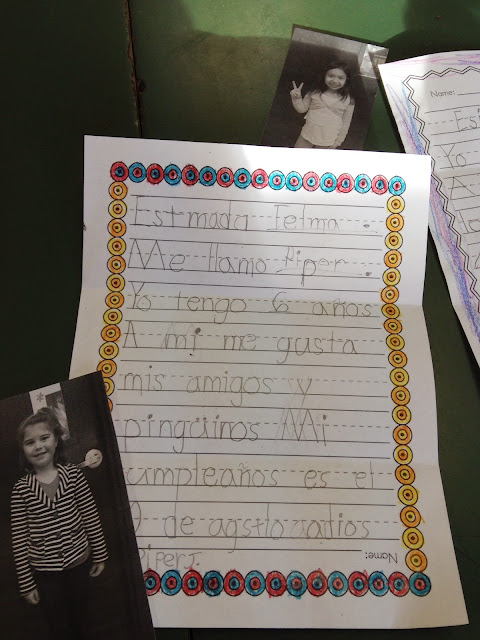 Estmada Felma.
Me llamo Piper.
Yo tengo 6 años
A mi me gusta
mis amigos y
pingüinos Mi
umpleaños es el
de adios
Name:
Piper J.
Name:
Yo
A